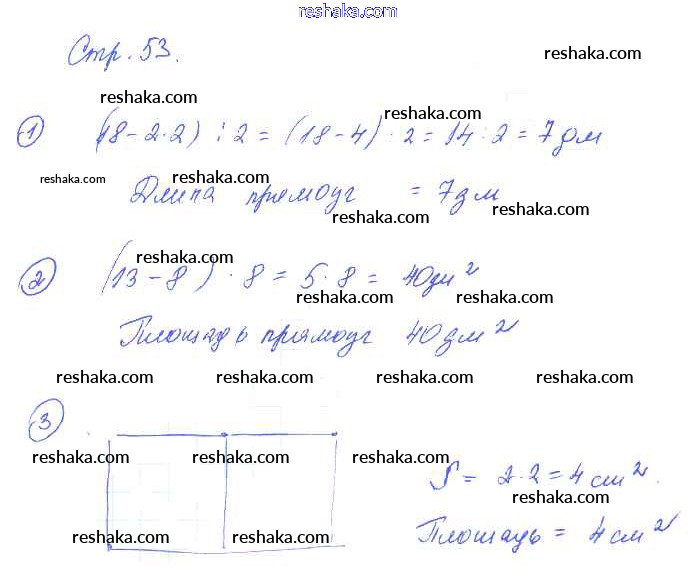 reshaka.com
Стр. 53.
reshaka.com
reshaka.com reshaka.com
① (18-2·2) : 2 = (18-4) · 2 = 14 : 2 = 7 дм
reshaka.com reshaka.com reshaka.com
Длина прямоуг = 7 дм
reshaka.com
reshaka.com
② (13-8) · 8 = 5·8 = 40 дм²
reshaka.com reshaka.com
Площадь прямоуг 40 дм²
reshaka.com reshaka.com
reshaka.com reshaka.com reshaka.com reshaka.com
③
reshaka.com reshaka.com reshaka.com
S = 2·2 = 4 см².
reshaka.com
Площадь = 4 см²
reshaka.com reshaka.com
reshaka.com